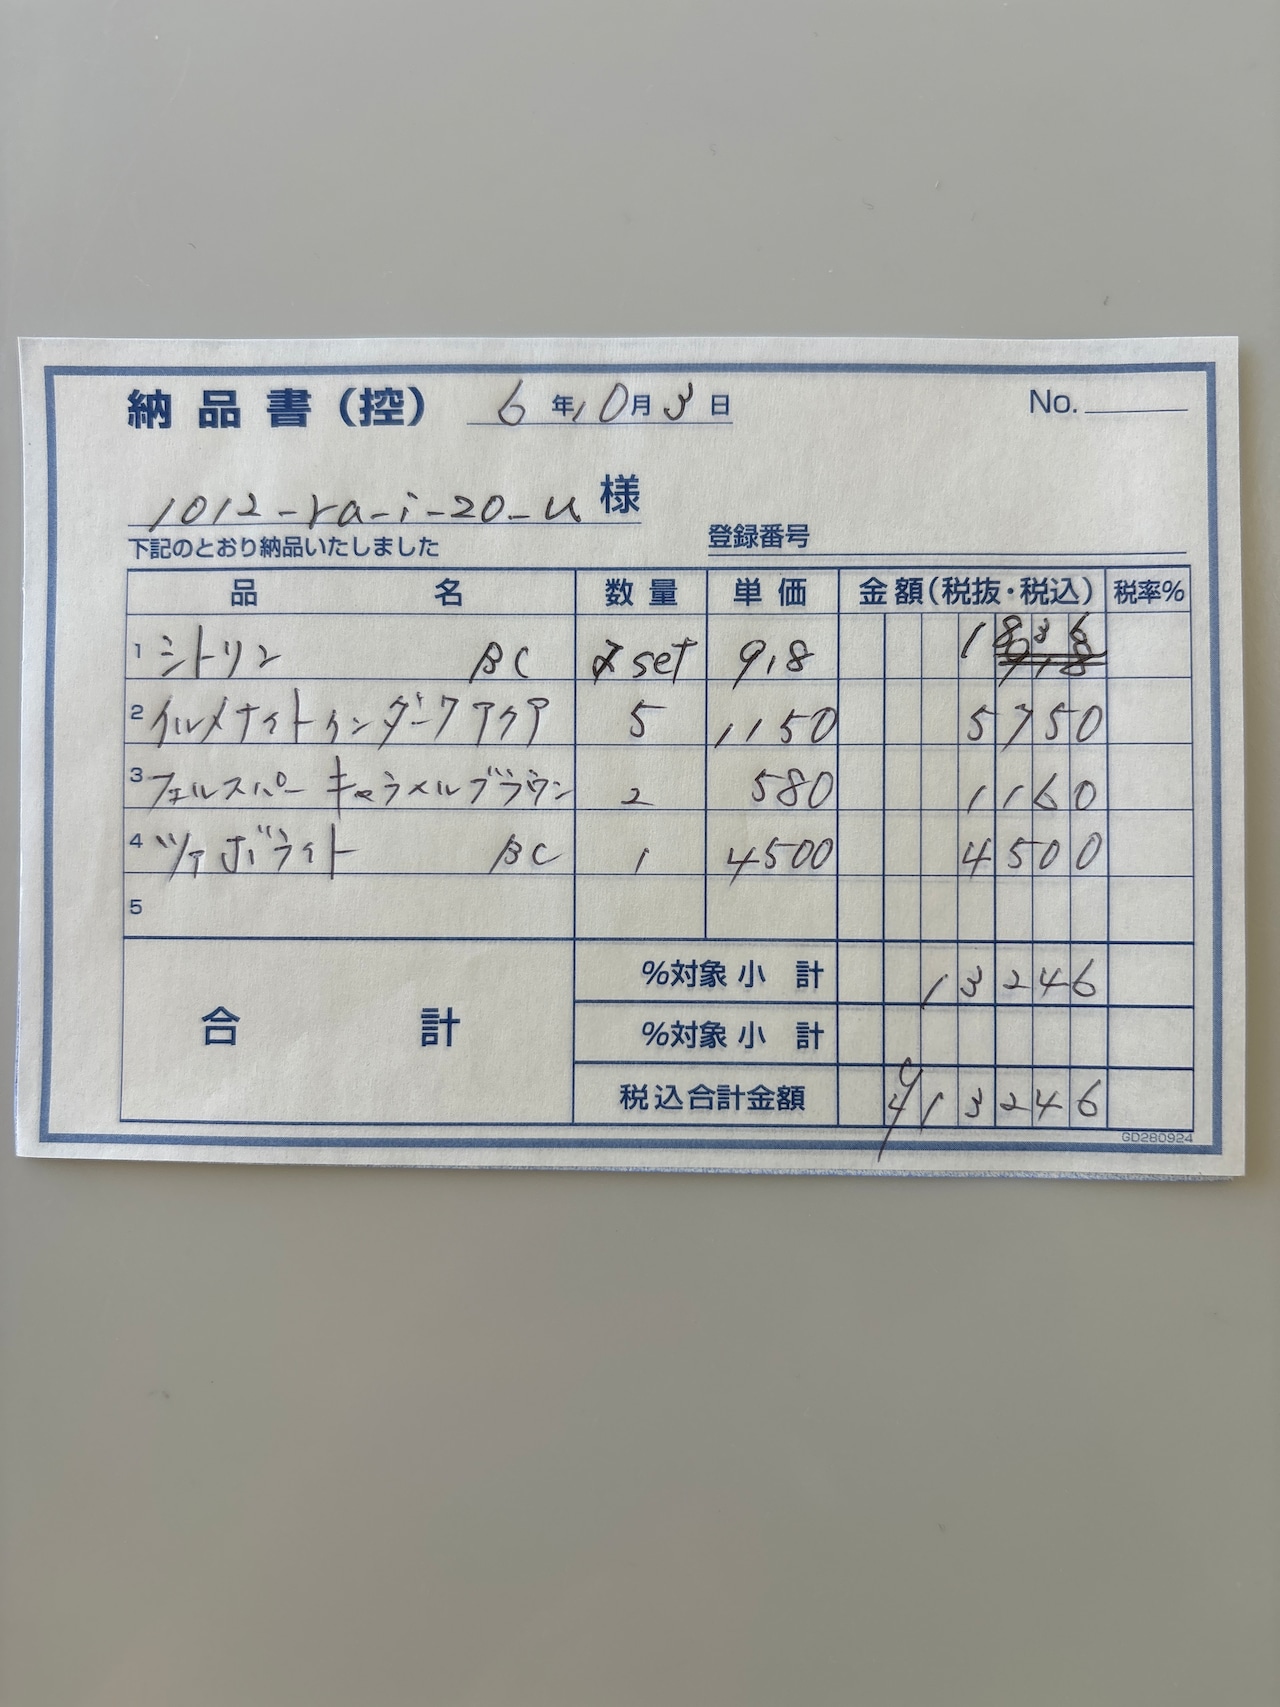 納品書(控) 6年10月3日 No.
1012-ra-i-20-u 様
下記のとおり納品いたしました 登録番号
品名 数量 単価 金額(税抜・税込) 税率%
1 シトリン BC 2set 918 1836
2 イルメナイトインダークアクア 5 1150 5750
3 フェルスパー キャラメルブラウン 2 580 1160
4 ツァボライト BC 1 4500 4500
5
%対象小計 13246
合計 %対象小計
税込合計金額 ¥13246
GD280924